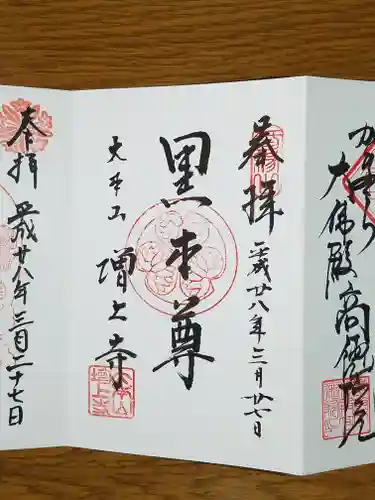 かまくら
大佛殿高徳院
奉拝
平成廿八年三月廿七日
黒本尊
大本山
増上寺
奉拝
平成廿八年三月二十七日